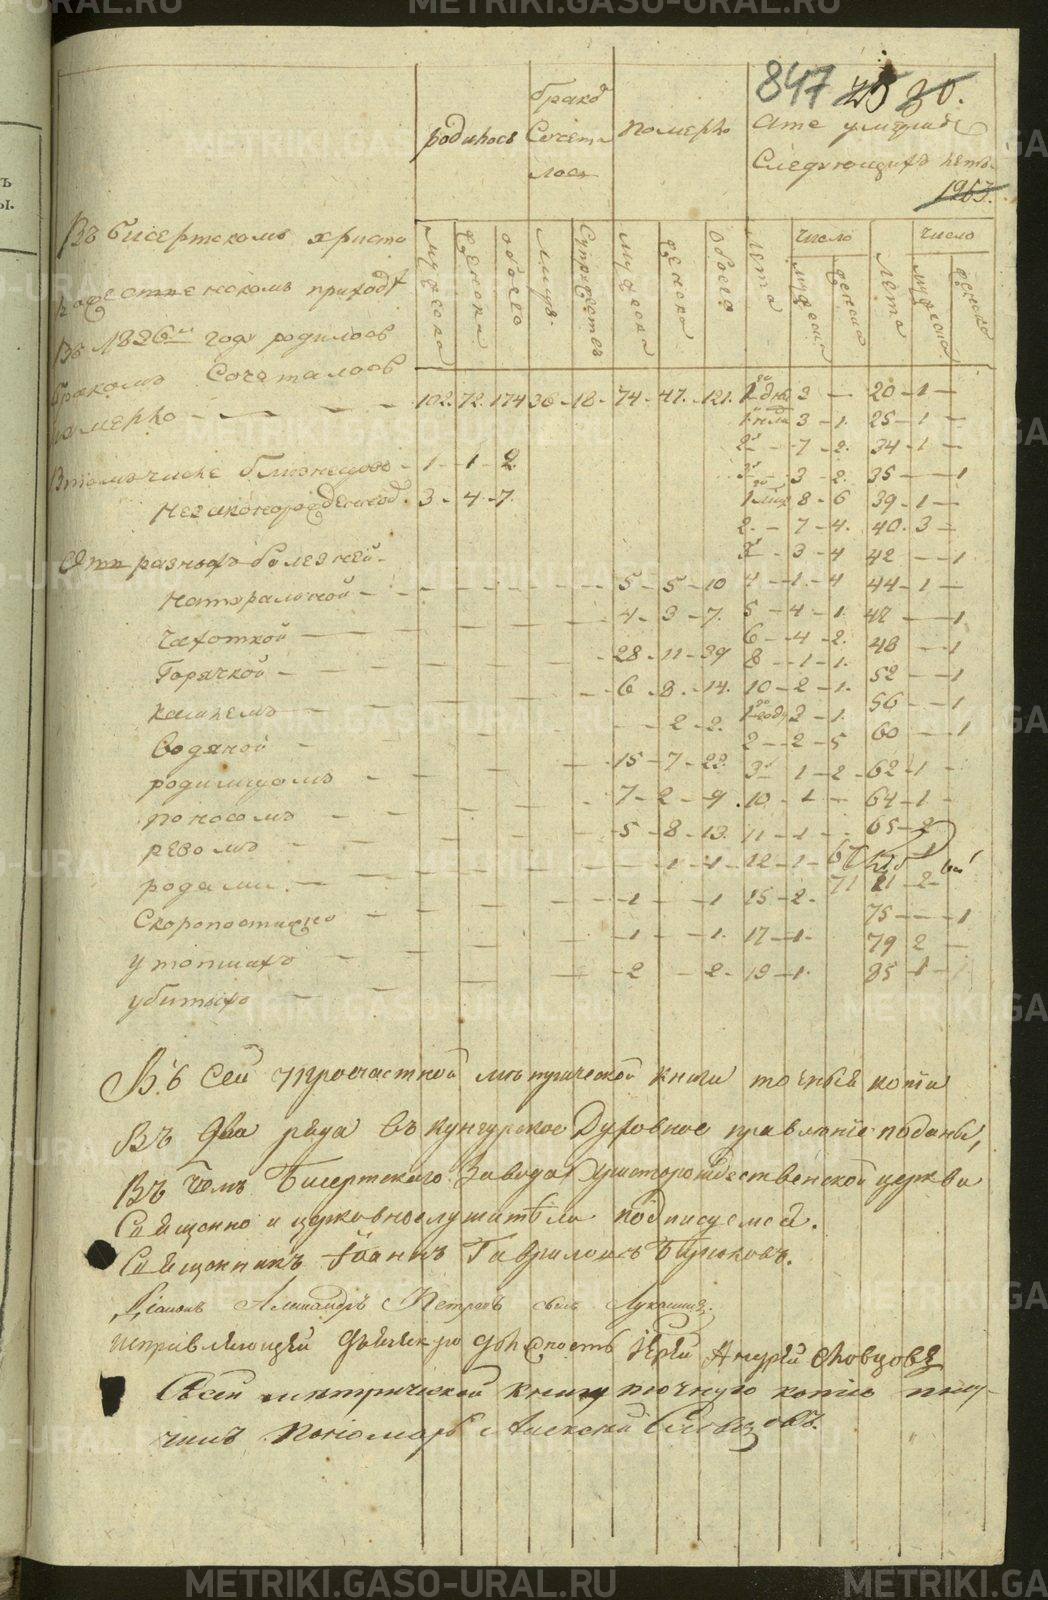 METRIKI.GASO-URAL.RU
847 25 30.
1963.
родилось
бракѡ
Сочета
лось
Померло
Лѣта умершіе
Следующихъ летъ.
мужеска
женска
обоего
Супружествъ
мужеска
женска
обоего
Лѣта
число
мужеска
женска
Лѣта
число
мужеска
женска
Въ Бисертскомъ христо
рождественскомъ приходѣ
Въ 1826м году родилось
бракомъ Сочеталось
померло - 102. 72. 174 36 - 18 - 74 - 47. - 121.
Въ томъ числе близнецовъ - 1 - 1 - 2.
Незаконорожденной. 3 - 4 - 7.
Отъ разныхъ болезней.
Натуральной - 5 - 5 - 10
Чахоткой - 4 - 3 - 7.
Горячкой - 28 - 11 - 39
кашлемъ - 6 - 8. - 14.
Водяной - 2 - 2.
родимцомъ - 15 - 7 - 22.
поносомъ - 7 - 2 - 9.
ревомъ - 5 - 8 - 13.
родами. - 1 - 1
Скоропостижно - 1 - 1
утопшихъ - 1 - 1.
убитыхъ - 2 - 2.
1 дня 3 - 20 - 1 -
1 нед. 3 - 1. 25 - 1 -
2 - 7 - 2. 34 - 1 -
3 - 3 - 2. 35 - - 1
1 мѣс 8 - 6 39 - 1 -
2. - 7 - 4. 40. 3 -
3 - 3 - 4 42 - - 1
4 - 1. - 4 44 - 1 -
5 - 4 - 1. 47 - 1
6 - 4 - 2. 48 - 1
8 - 1 - 1. 52 - 1
10 - 2 - 1. 56 - 1
1 году 2 - 1. 60 - 1
2 - 2 - 5 62 - 1 -
3 - 1 - 2 - 64 - 1 -
10 - 1 - 65 - 2
11 - 1 - 67
12 - 1 - 71 - 2 -
15 - 2. 75 - - 1
17 - 1. 79 2 -
19 - 1. 85 - 1 -
Въ сей трочастной метрической книги точныя копіи
Въ два ряда въ кунгурское Духовное правленіе поданы,
Въ чемъ Бисертскаго Завода Христорождественской церкви
Священно и церковнослужители подписуемся.
Священникъ Іоаннъ Гавриловъ Бирюковъ.
Діаконъ Александръ Петровъ сынъ Луканинъ.
исправляющей дьячекую должность Іерей Андрей Словцовъ
Съ сей метрической книги точную копію полу-
чилъ Пономарь Алексѣй Словцовъ.